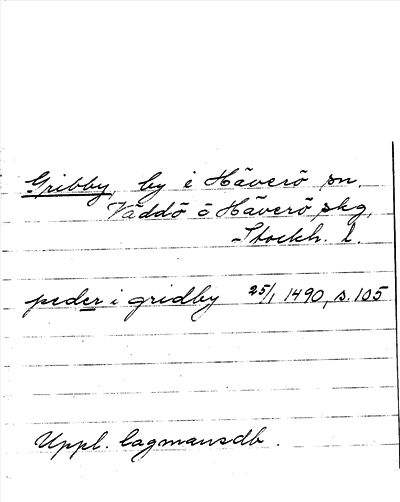 Gribby, by i Häverö sn.
Väddö o Häverö skg,
Stockh. l.
peder i gridby 25/1 1490, s. 105
Uppl. lagmansdb.